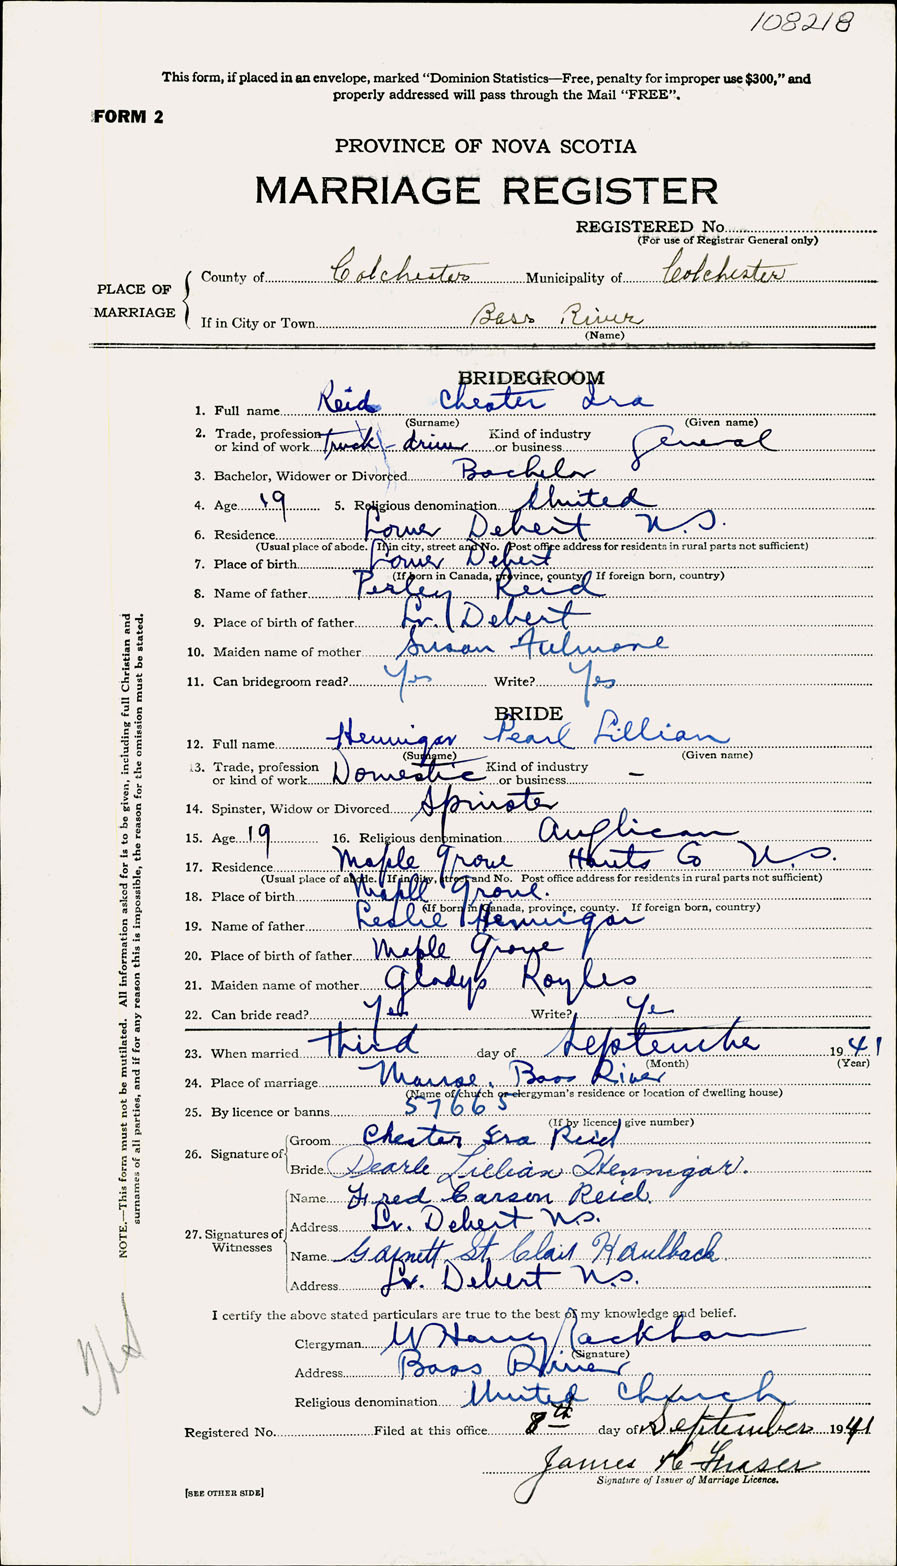 108218
This form, if placed in an envelope, marked “Dominion Statistics—Free, penalty for improper use $300,” and
properly addressed will pass through the Mail “FREE”.
FORM 2
PROVINCE OF NOVA SCOTIA
MARRIAGE REGISTER
REGISTERED No.
(For use of Registrar General only)
PLACE OF MARRIAGE
County of Colchester Municipality of Colchester
If in City or Town Bass River
(Name)
BRIDEGROOM
1. Full name Reid Chester Ira
(Surname) (Given name)
2. Trade, profession or kind of work truck-driver Kind of industry or business General
3. Bachelor, Widower or Divorced Bachelor
4. Age 19 5. Religious denomination United
6. Residence Lower Debert N.S.
(Usual place of abode. If in city, street and No. Post office address for residents in rural parts not sufficient)
7. Place of birth Lower Debert
(If born in Canada, province, county. If foreign born, country)
8. Name of father Perley Reid
9. Place of birth of father Lr. Debert
10. Maiden name of mother Susan Fulmore
11. Can bridegroom read? Yes Write? Yes
BRIDE
12. Full name Hennigar Pearl Lillian
(Surname) (Given name)
13. Trade, profession or kind of work Domestic Kind of industry or business –
14. Spinster, Widow or Divorced Spinster
15. Age 19 16. Religious denomination Anglican
17. Residence Maple Grove Hants Co N.S.
(Usual place of abode. If in city, street and No. Post office address for residents in rural parts not sufficient)
18. Place of birth Maple Grove.
(If born in Canada, province, county. If foreign born, country)
19. Name of father Leslie Hennigar
20. Place of birth of father Maple Grove
21. Maiden name of mother Gladys Royles
22. Can bride read? Yes Write? Ye
23. When married third day of September 1941
(Month) (Year)
24. Place of marriage Manse, Bass River
(Name of church or clergyman's residence or location of dwelling house)
25. By licence or banns 57665
(If by licence, give number)
26. Signature of
Groom Chester Ira Reid
Bride Pearle Lillian Hennigar.
27. Signatures of Witnesses
Name Fred Carson Reid.
Address Lr. Debert N.S.
Name Garnett St. Clair Haulback
Address Lr. Debert N.S.
I certify the above stated particulars are true to the best of my knowledge and belief.
Clergyman W Harry Rackham
(Signature)
Address Bass River
Religious denomination United Church
Registered No. Filed at this office 8th day of September 1941
James H Fraser
Signature of Issuer of Marriage Licence.
[SEE OTHER SIDE]
NOTE.—This form must not be mutilated. All information asked for is to be given, including full Christian and
surnames of all parties, and if for any reason this is impossible, the reason for the omission must be stated.